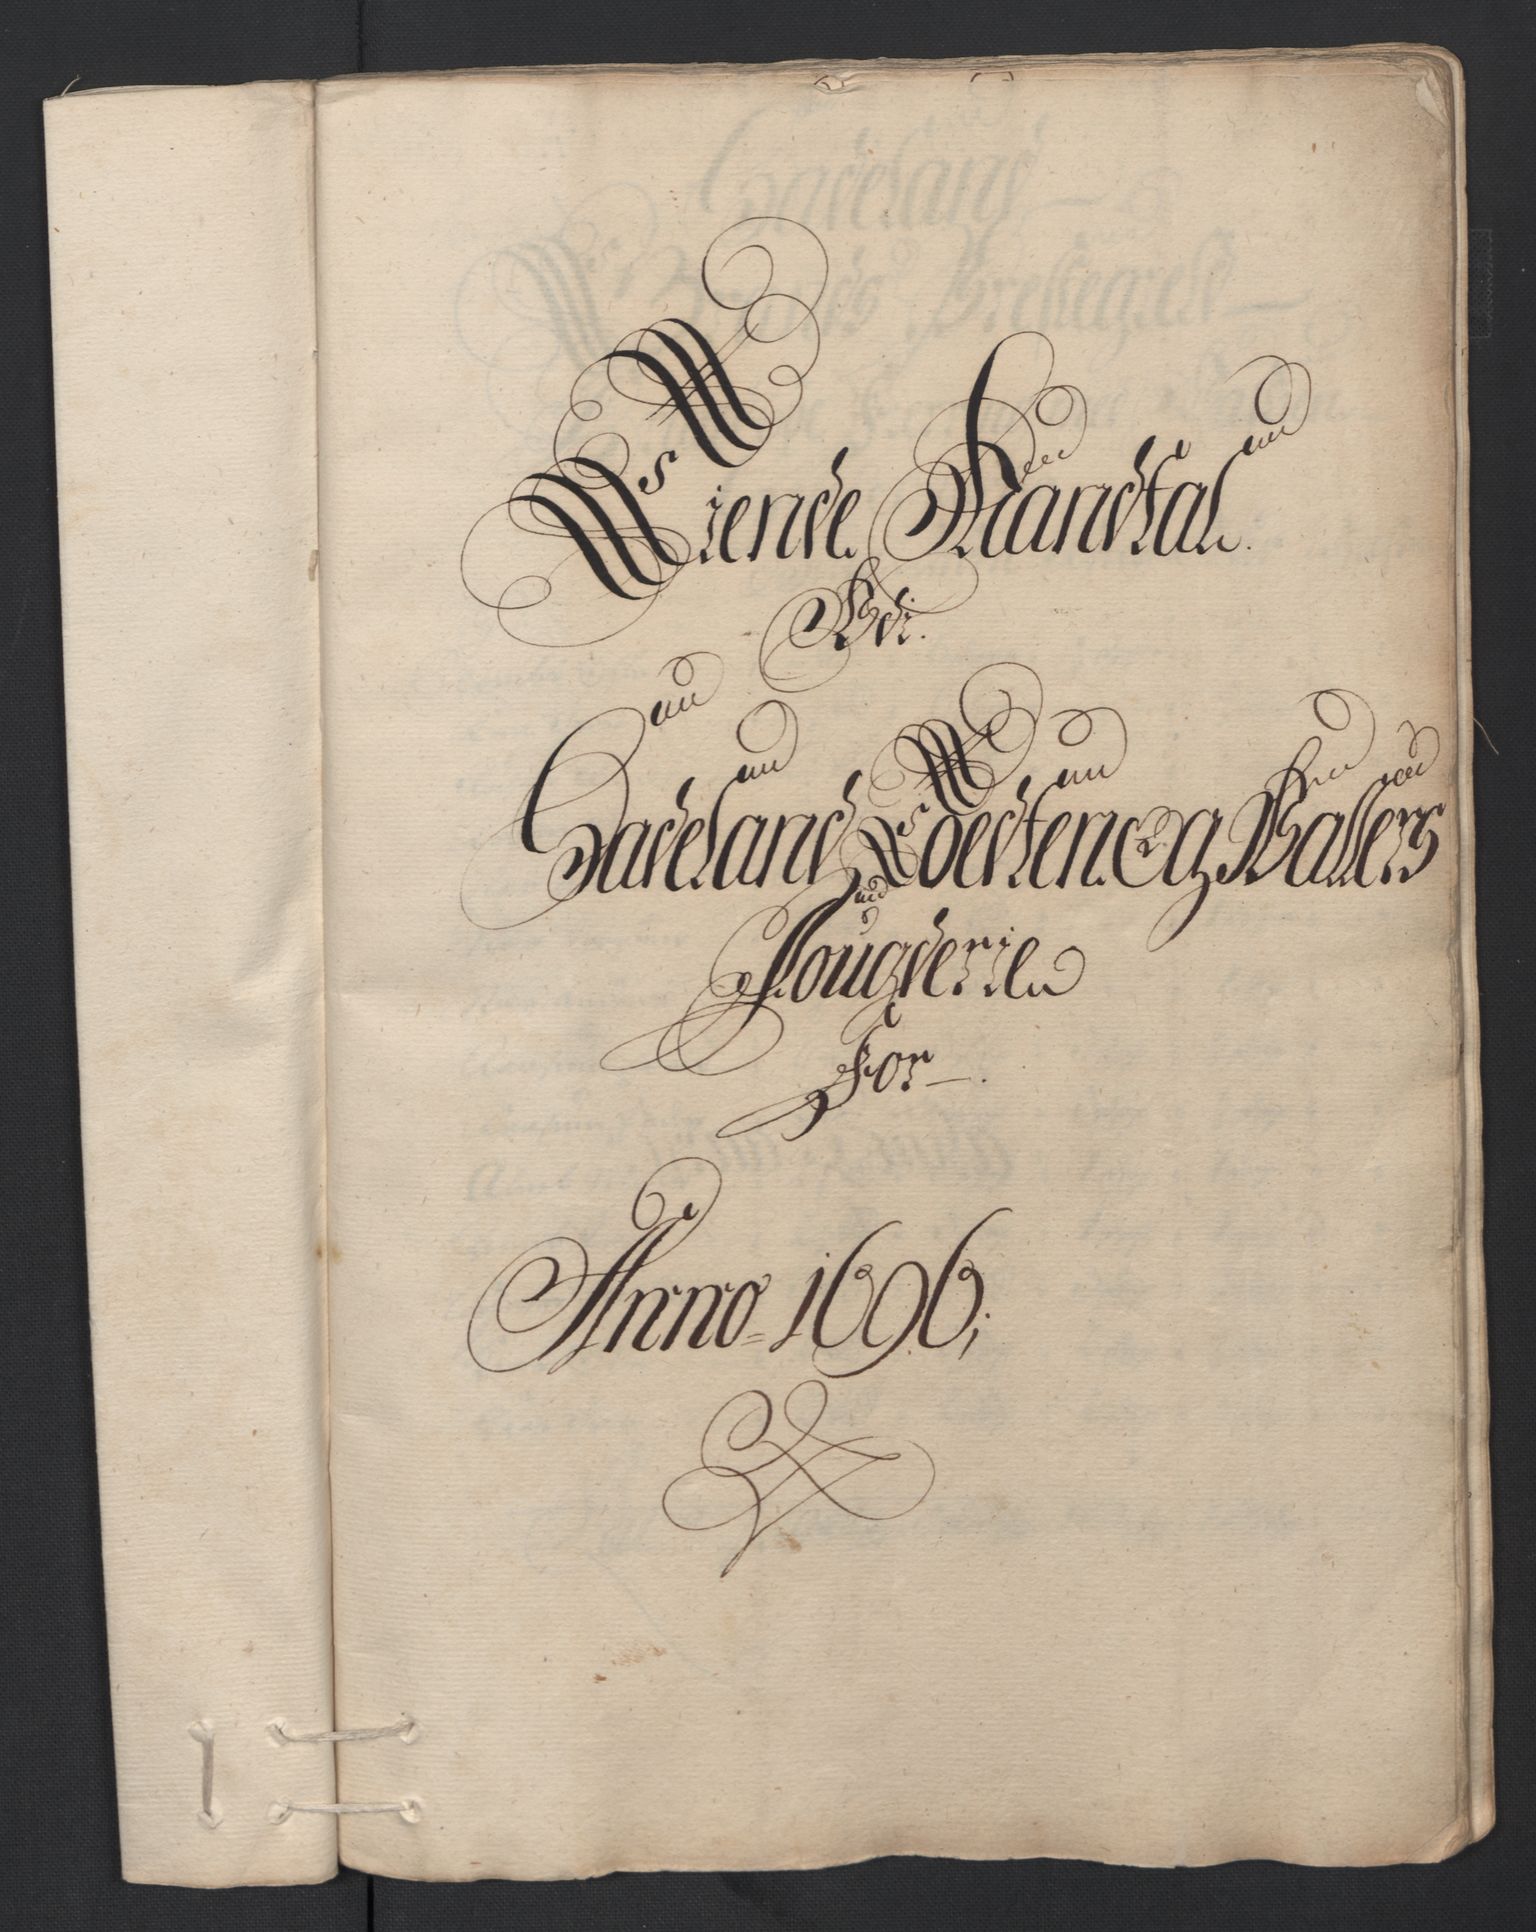 Tiende Mandtal.
Udi.
Hadeland Toedten Og Valders
Fougderie
For.
Anno 1696;